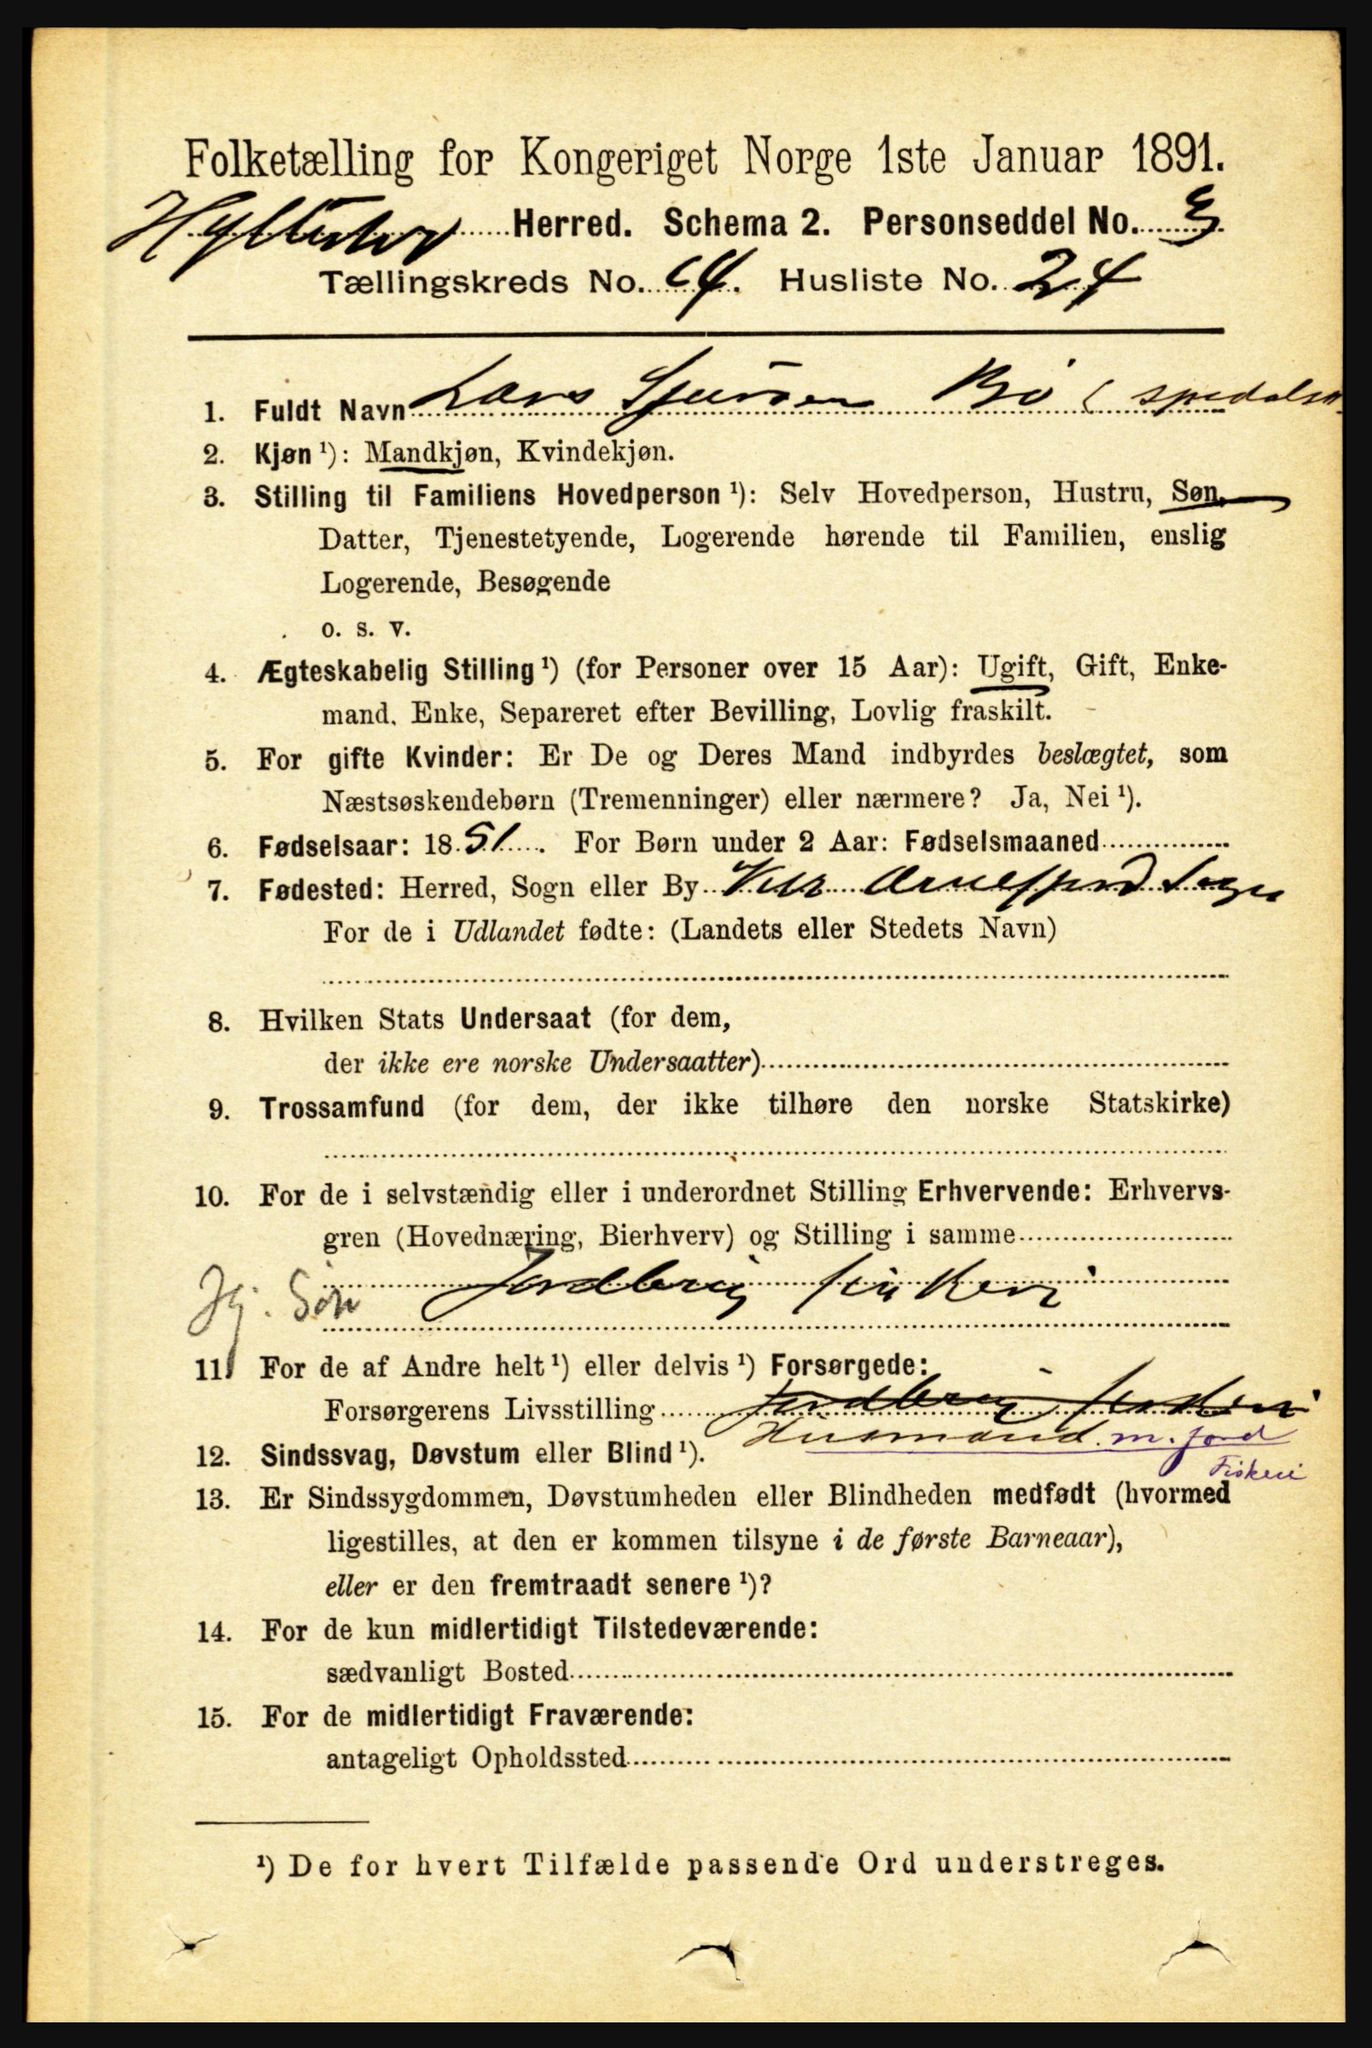 Folketælling for Kongeriget Norge 1ste Januar 1891.
Hyllestad Herred. Schema 2. Personseddel No. 3
Tællingskreds No. 4. Husliste No. 24
1. Fuldt Navn Lars Sjursen Bø (spedalsk
2. Kjøn ¹): Mandkjøn, Kvindekjøn.
3. Stilling til Familiens Hovedperson ¹): Selv Hovedperson, Hustru, Søn,
Datter, Tjenestetyende, Logerende hørende til Familien, enslig
Logerende, Besøgende
o. s. v.
4. Ægteskabelig Stilling ¹) (for Personer over 15 Aar): Ugift, Gift, Enke-
mand, Enke, Separeret efter Bevilling, Lovlig fraskilt.
5. For gifte Kvinder: Er De og Deres Mand indbyrdes beslægtet, som
Næstsøskendebørn (Tremenninger) eller nærmere? Ja, Nei ¹).
6. Fødselsaar: 1851. For Børn under 2 Aar: Fødselsmaaned
7. Fødested: Herred, Sogn eller By
For de i Udlandet fødte: (Landets eller Stedets Navn)
8. Hvilken Stats Undersaat (for dem,
der ikke ere norske Undersaatter)
9. Trossamfund (for dem, der ikke tilhøre den norske Statskirke)
10. For de i selvstændig eller i underordnet Stilling Erhvervende: Erhvervs-
gren (Hovednæring, Bierhverv) og Stilling i samme
Hj. Søn Jordbrug fiskeri
11. For de af Andre helt ¹) eller delvis ¹) Forsørgede:
Forsørgerens Livsstilling Jordbrug fiskeri
Husmand m. jord
12. Sindssvag, Døvstum eller Blind ¹).
Fiskeri
13. Er Sindssygdommen, Døvstumheden eller Blindheden medfødt (hvormed
ligestilles, at den er kommen tilsyne i de første Barneaar),
eller er den fremtraadt senere ¹)?
14. For de kun midlertidigt Tilstedeværende:
sædvanligt Bosted
15. For de midlertidigt Fraværende:
antageligt Opholdssted
¹) De for hvert Tilfælde passende Ord understreges.